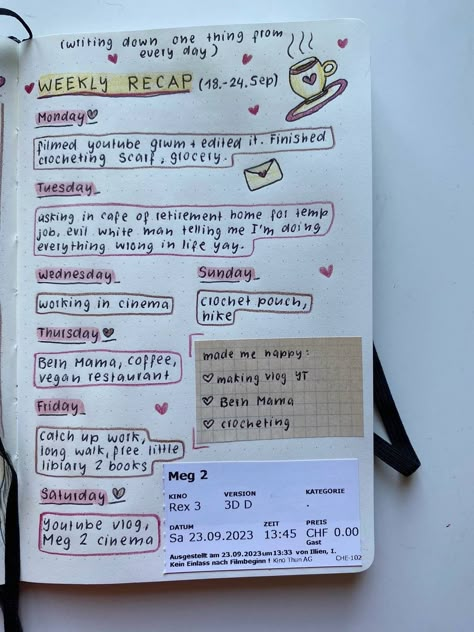 (writing down one thing from
every day)
WEEKLY RECAP (18.-24.Sep)
Monday
filmed youtube grwm + edited it. Finished
crocheting scarf, grocery.
Tuesday
asking in cafe of retirement home for temp
job, evil white man telling me I'm doing
everything wrong in life yay.
Wednesday
working in cinema
Sunday
crochet pouch,
hike
Thursday
Bern Mama, coffee,
vegan restaurant
made me happy:
making vlog YT
Bern Mama
crocheting
Friday
catch up work,
long walk, free little
library 2 books
Saturday
Youtube vlog,
Meg 2 cinema
Meg 2
KINO VERSION KATEGORIE
Rex 3 3D D .
DATUM ZEIT PREIS
Sa 23.09.2023 13:45 CHF 0.00
Gast
Ausgestellt am 23.09.2023 um 13:33 von Illien, I.
Kein Einlass nach Filmbeginn ! Kino Thun AG CHE-102